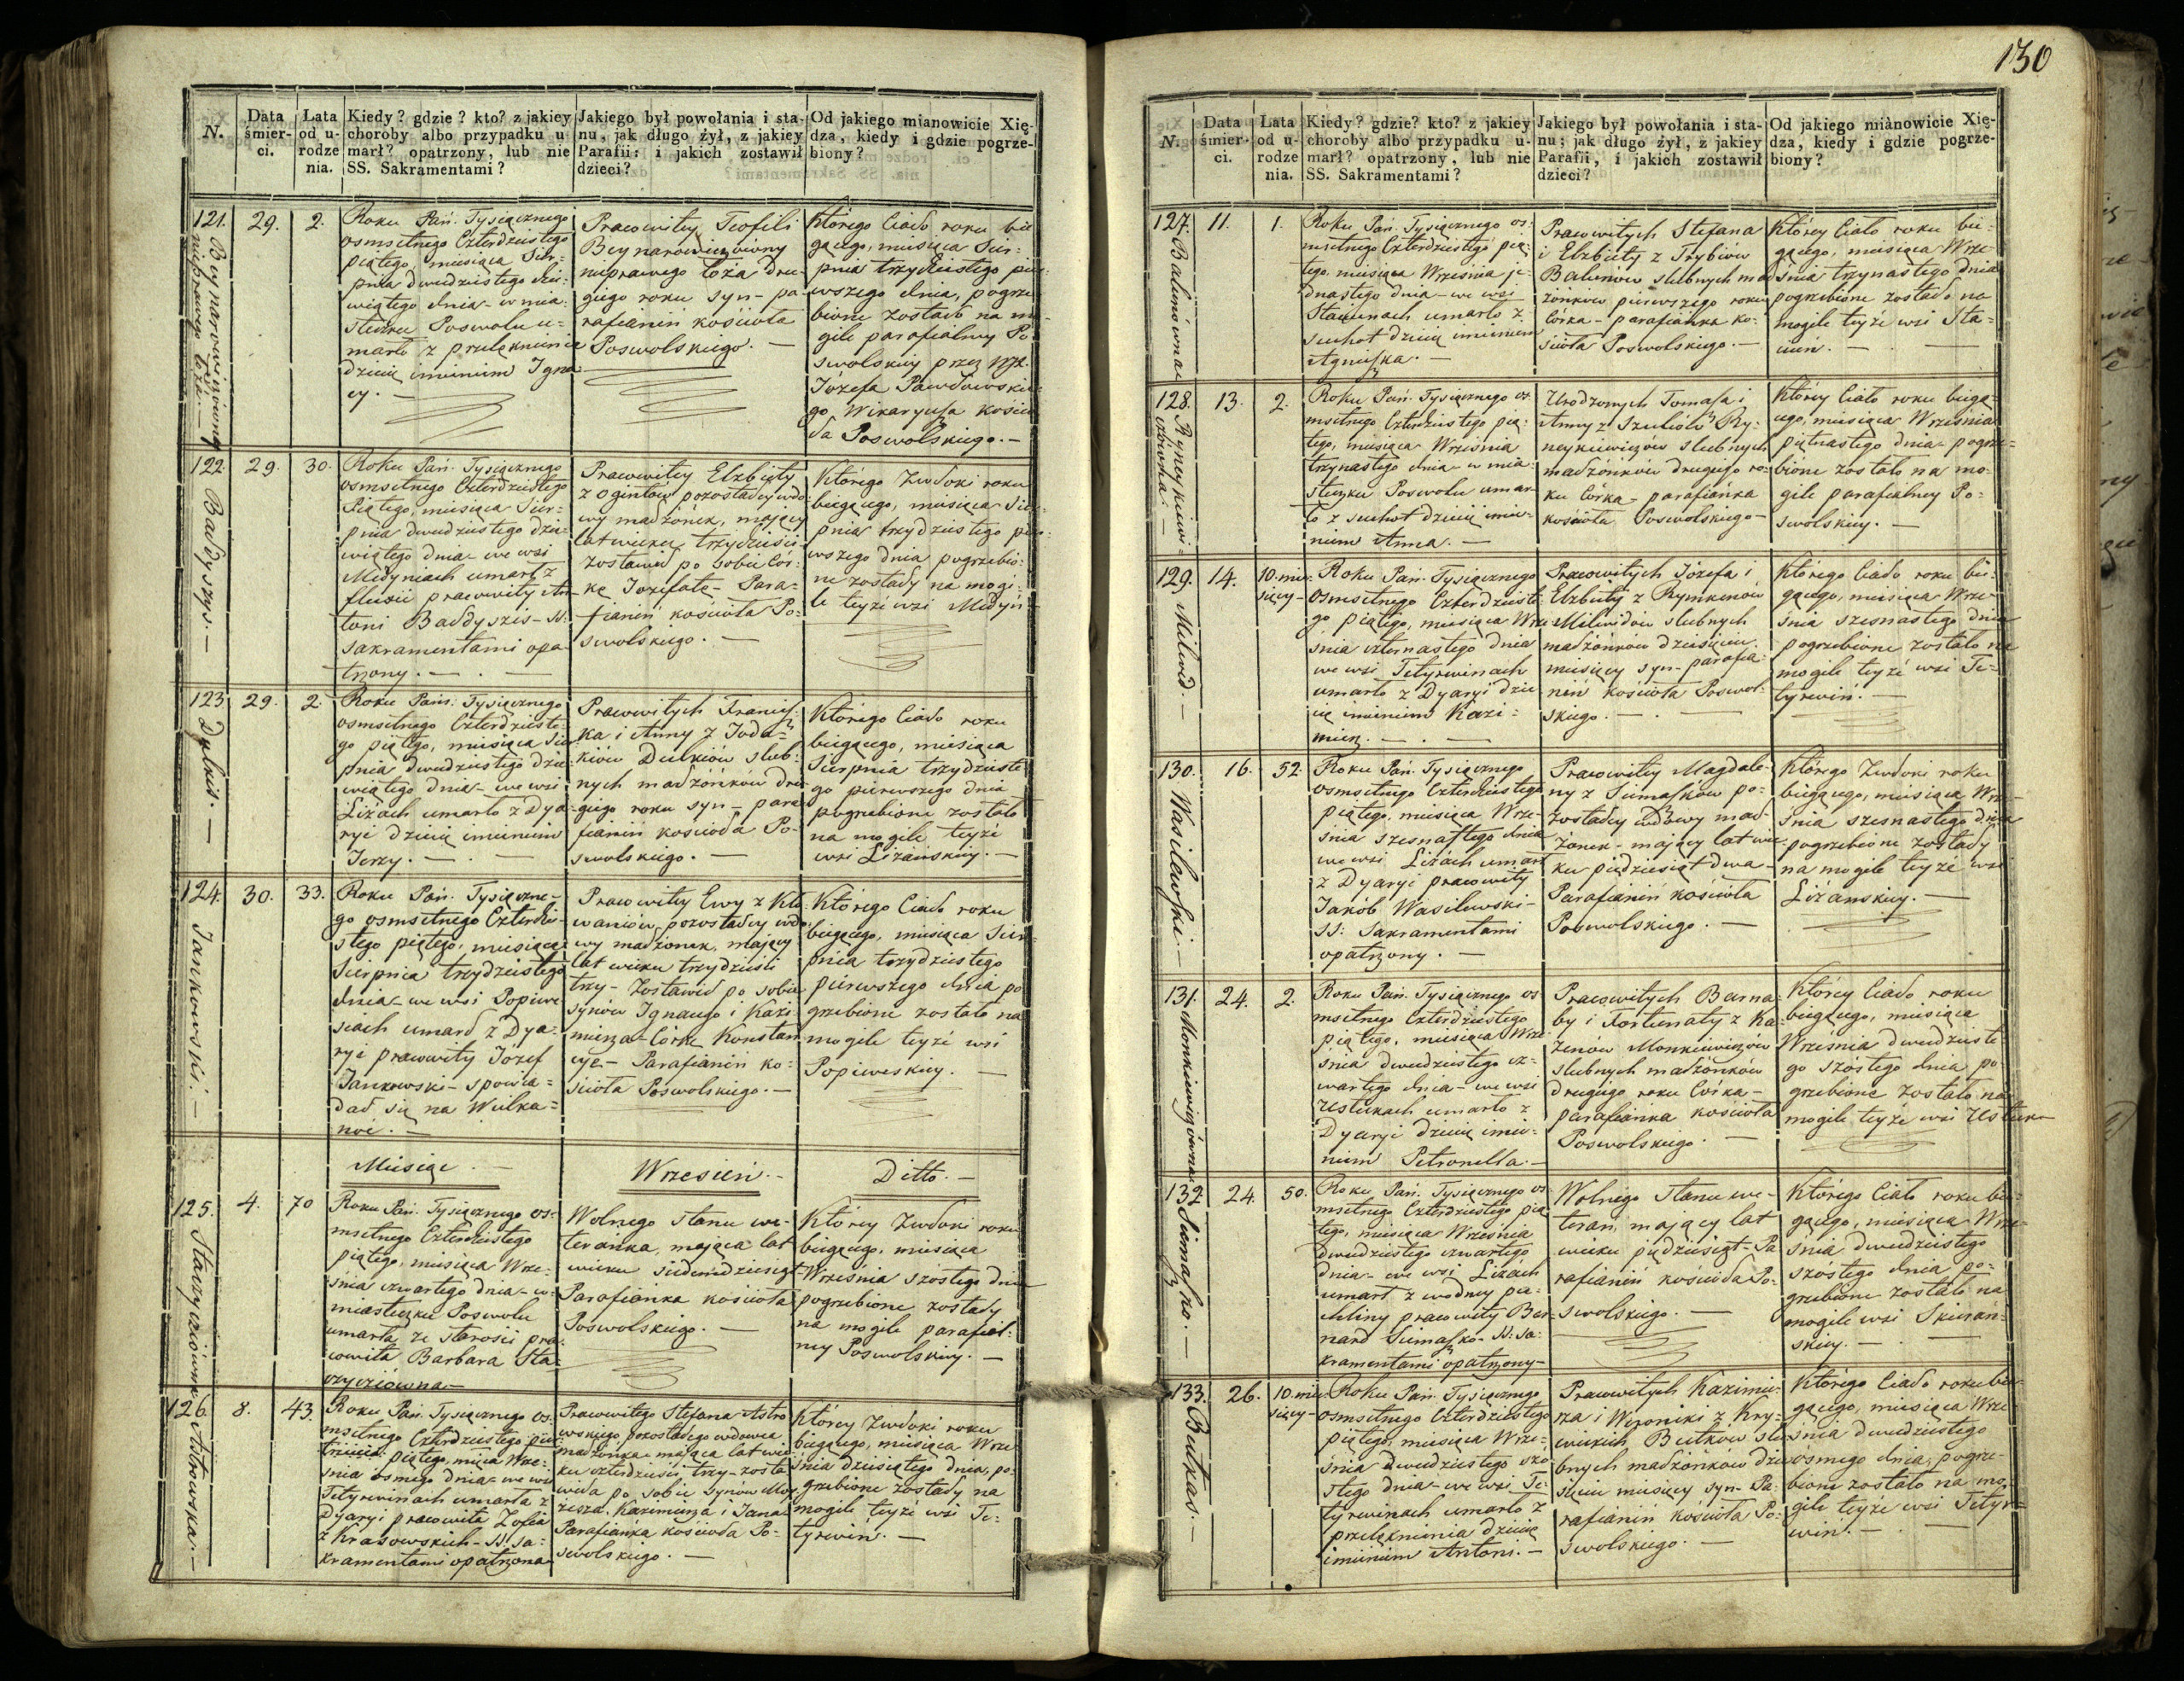 130
N.
Data śmier- ci.
Lata od u- rodze nia.
Kiedy? gdzie? kto? z jakiey
choroby albo przypadku u-
marł? opatrzony, lub nie
SS. Sakramentami?
Jakiego był powołania i sta-
nu, jak długo żył, z jakiey
Parafii: i jakich zostawił
dzieci?
Od jakiego mianowicie Xię-
dza, kiedy i gdzie pogrze-
biony?
121.
29.
2.
Roku Pań. Tysiącznego
osmsetnego Czterdziestego
piątego, miesiąca Sier-
pnia dwudziestego dzie-
wiątego dnia - w mia-
steczku Poswolu u-
marło z przelęknienia
dziecię imieniem Igna-
cy. —
Pracowitey Teofili
nieprawego łoża dru-
giego roku syn - pa-
rafianin kościoła
Poswolskiego. —
Którego Ciało roku bie-
gącego, miesiąca Sier-
pnia trzydziestego pier-
wszego dnia, pogrze-
bione zostało na mo-
gile parafialney Po-
swolskiey przez
Józefa Pawłowskie-
go Wikaryusza kościo-
ła Poswolskiego. —
122
Bałdyszys. —
29.
30.
Roku Pań. Tysiącznego
osmsetnego Czterdziestego
Piątego, miesiąca Sier-
pnia dwudziestego dzie-
wiątego dnia - we wsi
Medyniach umarł z
fluxii pracowity An-
toni Bałdyszis - SS.
Sakramentami opa-
trzony. —
Pracowitey Elzbiety
z Ogintów pozostałey wdo-
wy małżonek, maiący
lat wieku trzydzieści
zostawił po sobie Cór-
kę Jozefatę - Para-
fianin kościoła Po-
swolskiego. —
Którego Zwłoki roku
biegącego, miesiąca Sier-
pnia trzydziestego pier-
wszego dnia pogrzebio-
ne zostały na mogi-
le teyże wsi Medyń
123
Dulkis. —
29.
2.
Roku Pań. Tysiącznego
osmsetnego Czterdzieste-
go piątego, miesiąca Sier-
pnia dwudziestego dzie-
wiątego dnia - we wsi
Liżach umarło z Dya-
ryi dziecię imieniem
Jerzy. —
Pracowitych Francisz-
ka i Anny z Juda-
kiów Dulkiów slub-
nych małżonków dru-
giego roku syn - para-
fianin kościoła Po-
swolskiego. —
Którego Ciało roku
biegącego, miesiąca
Sierpnia trzydzieste-
go pierwszego dnia
pogrzebione zostało
na mogile teyże
wsi Liżańskiey. —
124.
Jankowski. —
30.
33.
Roku Pań. Tysiączne-
go osmsetnego Czterdzie-
stego piątego, miesiąca
Sierpnia trzydziestego
dnia - we wsi Popiwe-
siach umarł z Dya-
ryi pracowity Józef
Jankowski - spowia-
dał się na Wielka-
noc. —
Pracowitey Ewy z
waniów, pozostałey wdo-
wy małżonek, maiący
lat wieku trzydzieści
trzy - Zostawił po sobie
synów Ignacego i Kazi-
mierza - Córkę Konstan-
cyę - Parafianin ko-
ścioła Poswolskiego. —
Którego Ciało roku
biegącego, miesiąca Sier-
pnia trzydziestego
pierwszego dnia po-
grzebione zostało na
mogile teyże wsi
Popiweskiey. —
Miesiąc. — Wrzesień. — Ditto. —
125.
4.
70
Roku Pań. Tysiącznego os-
msetnego Czterdziestego
piątego, miesiąca Wrze-
śnia czwartego dnia - w
miasteczku Poswolu
umarła ze starości pra-
cowita Barbara Sta-
czyciówna. —
Wolnego stanu we-
teranka, maiąca lat
wieku siedemdziesiąt
Parafianka kościoła
Poswolskiego. —
Którey Zwłoki roku
biegącego, miesiąca
Września szóstego dnia
pogrzebione zostały
na mogile parafial-
ney Poswolskiey. —
126.
Astrowska. —
8.
43.
Roku Pań. Tysiącznego os-
msetnego Czterdziestego
piątego, mieś̨ca Wrze-
śnia osmego dnia - we wsi
Tetyrwinach umarła z
Dyaryi pracowita Zofia
z Krasowskich - SS. Sa-
kramentami opatrzona
Pracowitego Stefana Astro-
wskiego pozostałego wdowca
małżonka maiąca lat wie-
ku czterdzieści trzy - zosta-
wiła po sobie synów
Kazimierza i Jana
Parafianka kościoła Po-
swolskiego. —
Którey Zwłoki roku
biegącego, miesiąca Wrze-
śnia dziesiątego dnia, po-
grzebione zostały na
mogile teyże wsi Te-
tyrwiń. —
N.
Data śmier- ci.
Lata od u- rodze nia.
Kiedy? gdzie? kto? z jakiey
choroby albo przypadku u-
marł? opatrzony, lub nie
SS. Sakramentami?
Jakiego był powołania i sta-
nu; jak długo żył, z jakiey
Parafii, i jakich zostawił
dzieci?
Od jakiego mianowicie Xię-
dza, kiedy i gdzie pogrze-
biony?
127.
Balunówna
11.
1.
Roku Pań. Tysiącznego os-
msetnego Czterdziestego pią-
tego, miesiąca Września je-
dnastego dnia - we wsi
Staciunach umarło z
suchot dziecię imieniem
Agnieszka. —
Pracowitych Stefana
i Elzbiety z Trybiów
Balunów slubnych mał-
żonków pierwszego roku
Córka - parafianka ko-
ścioła Poswolskiego. —
Którey Ciało roku bie-
gącego, miesiąca Wrze-
śnia trzynastego dnia
pogrzebione zostało na
mogile teyże wsi Sta-
ciuń. —
128.
13.
2.
Roku Pań. Tysiącznego os-
msetnego Czterdziestego pią-
tego, miesiąca Września
trzynastego dnia - w mia-
steczku Poswolu umar-
ło z suchot dziecię imie-
niem Anna. —
Urodzonych Tomasza i
Anny z Szulców Ry-
neykiewiczów slubnych
małżonków drugiego ro-
ku Córka - parafianka
kościoła Poswolskiego —
Którey Ciało roku biegą-
cego, miesiąca Września
piętnastego dnia - pogrze-
bione zostało na mo-
gile parafialney Po-
swolskiey. —
129.
Milwid. —
14.
10. mie-
sięcy -
Roku Pań. Tysiącznego
Osmsetnego Czterdzieste-
go piątego, miesiąca Wrze-
śnia czternastego dnia
we wsi Tetyrwinach
umarło z Dyaryi dzie-
cię imieniem Kazi-
mierz. —
Pracowitych Józefa i
Elzbiety z Rymkunów
Milwidów slubnych
małżonków dziesięciu
miesięcy syn - parafia-
nin kościoła Poswol-
skiego. —
Którego Ciało roku bie-
gącego, miesiąca Wrze-
śnia szesnastego dnia
pogrzebione zostało na
mogile teyże wsi Te-
tyrwiń. —
130.
Wasilewski. —
16.
52.
Roku Pań. Tysiącznego
osmsetnego Czterdziestego
piątego, miesiąca Wrze-
śnia szesnastego dnia
we wsi Liżach umarł
z Dyaryi pracowity
Jakób Wasilewski -
SS: Sakramentami
opatrzony. —
Pracowitey Magdale-
ny z Siemaszków po-
zostałey wdowy mał-
żonek - maiący lat wie-
ku pięćdziesiąt dwa -
Parafianin kościoła
Poswolskiego. —
Którego Zwłoki roku
biegącego, miesiąca Wrze-
śnia szesnastego dnia
pogrzebione zostały
na mogile teyże wsi
Liżanskiey. —
131.
Monkiewiczówna
24.
2.
Roku Pań. Tysiącznego os-
msetnego Czterdziestego
piątego, miesiąca Wrze-
śnia dwudziestego cz-
wartego dnia - we wsi
Ustukach umarło z
Dyaryi dziecię imie-
niem Petronella. —
Pracowitych Barna-
by i Fortunaty z Ka-
zenów Monkiewiczów
slubnych małżonków
drugiego roku Córka -
parafianka kościoła
Poswolskiego. —
Którey Ciało roku
biegącego, miesiąca
Września dwudzieste-
go szóstego dnia po-
grzebione zostało na
mogile teyże wsi Ustuku
132.
Siemaszko. —
24.
50.
Roku Pań. Tysiącznego os-
msetnego Czterdziestego pią-
tego, miesiąca Września
dwudziestego czwartego
dnia - we wsi Liżach
umarł z wodney pu-
chliny pracowity Ber-
nard Siemaszko - SS. Sa-
kramentami opatrzony —
Wolnego stanu we-
teran, maiący lat
wieku pięćdziesiąt - Pa-
rafianin kościoła Po-
swolskiego. —
Którego Ciało roku bie-
gącego, miesiąca Wrze-
śnia dwudziestego
szóstego dnia po-
grzebione zostało na
mogile wsi Skieran-
skiey. —
133.
Butkas. —
26.
10. mie-
sięcy -
Roku Pań. Tysiącznego
osmsetnego Czterdziestego
piątego, miesiąca Wrze-
śnia dwudziestego szó-
stego dnia - we wsi Te-
tyrwinach umarło z
przelęknienia dziecię
imieniem Antoni. —
Pracowitych Kazimie-
rza i Weroniki z Kry-
wickich Butków slu-
bnych małżonków dzie-
sięciu miesięcy syn - Pa-
rafianin kościoła Po-
swolskiego. —
Którego Ciało roku bie-
gącego, miesiąca Wrze-
śnia dwudziestego
ósmego dnia, pogrze-
bione zostało na mo-
gile teyże wsi Tetyr-
wiń. —